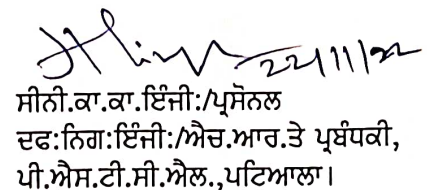 22/11/22
ਸੀਨੀ.ਕਾ.ਕਾ.ਇੰਜੀ:/ਪ੍ਰਸੋਨਲ
ਦਫ:ਨਿਗ:ਇੰਜੀ:/ਐਚ.ਆਰ.ਤੇ ਪ੍ਰਬੰਧਕੀ,
ਪੀ.ਐਸ.ਟੀ.ਸੀ.ਐਲ.,ਪਟਿਆਲਾ।